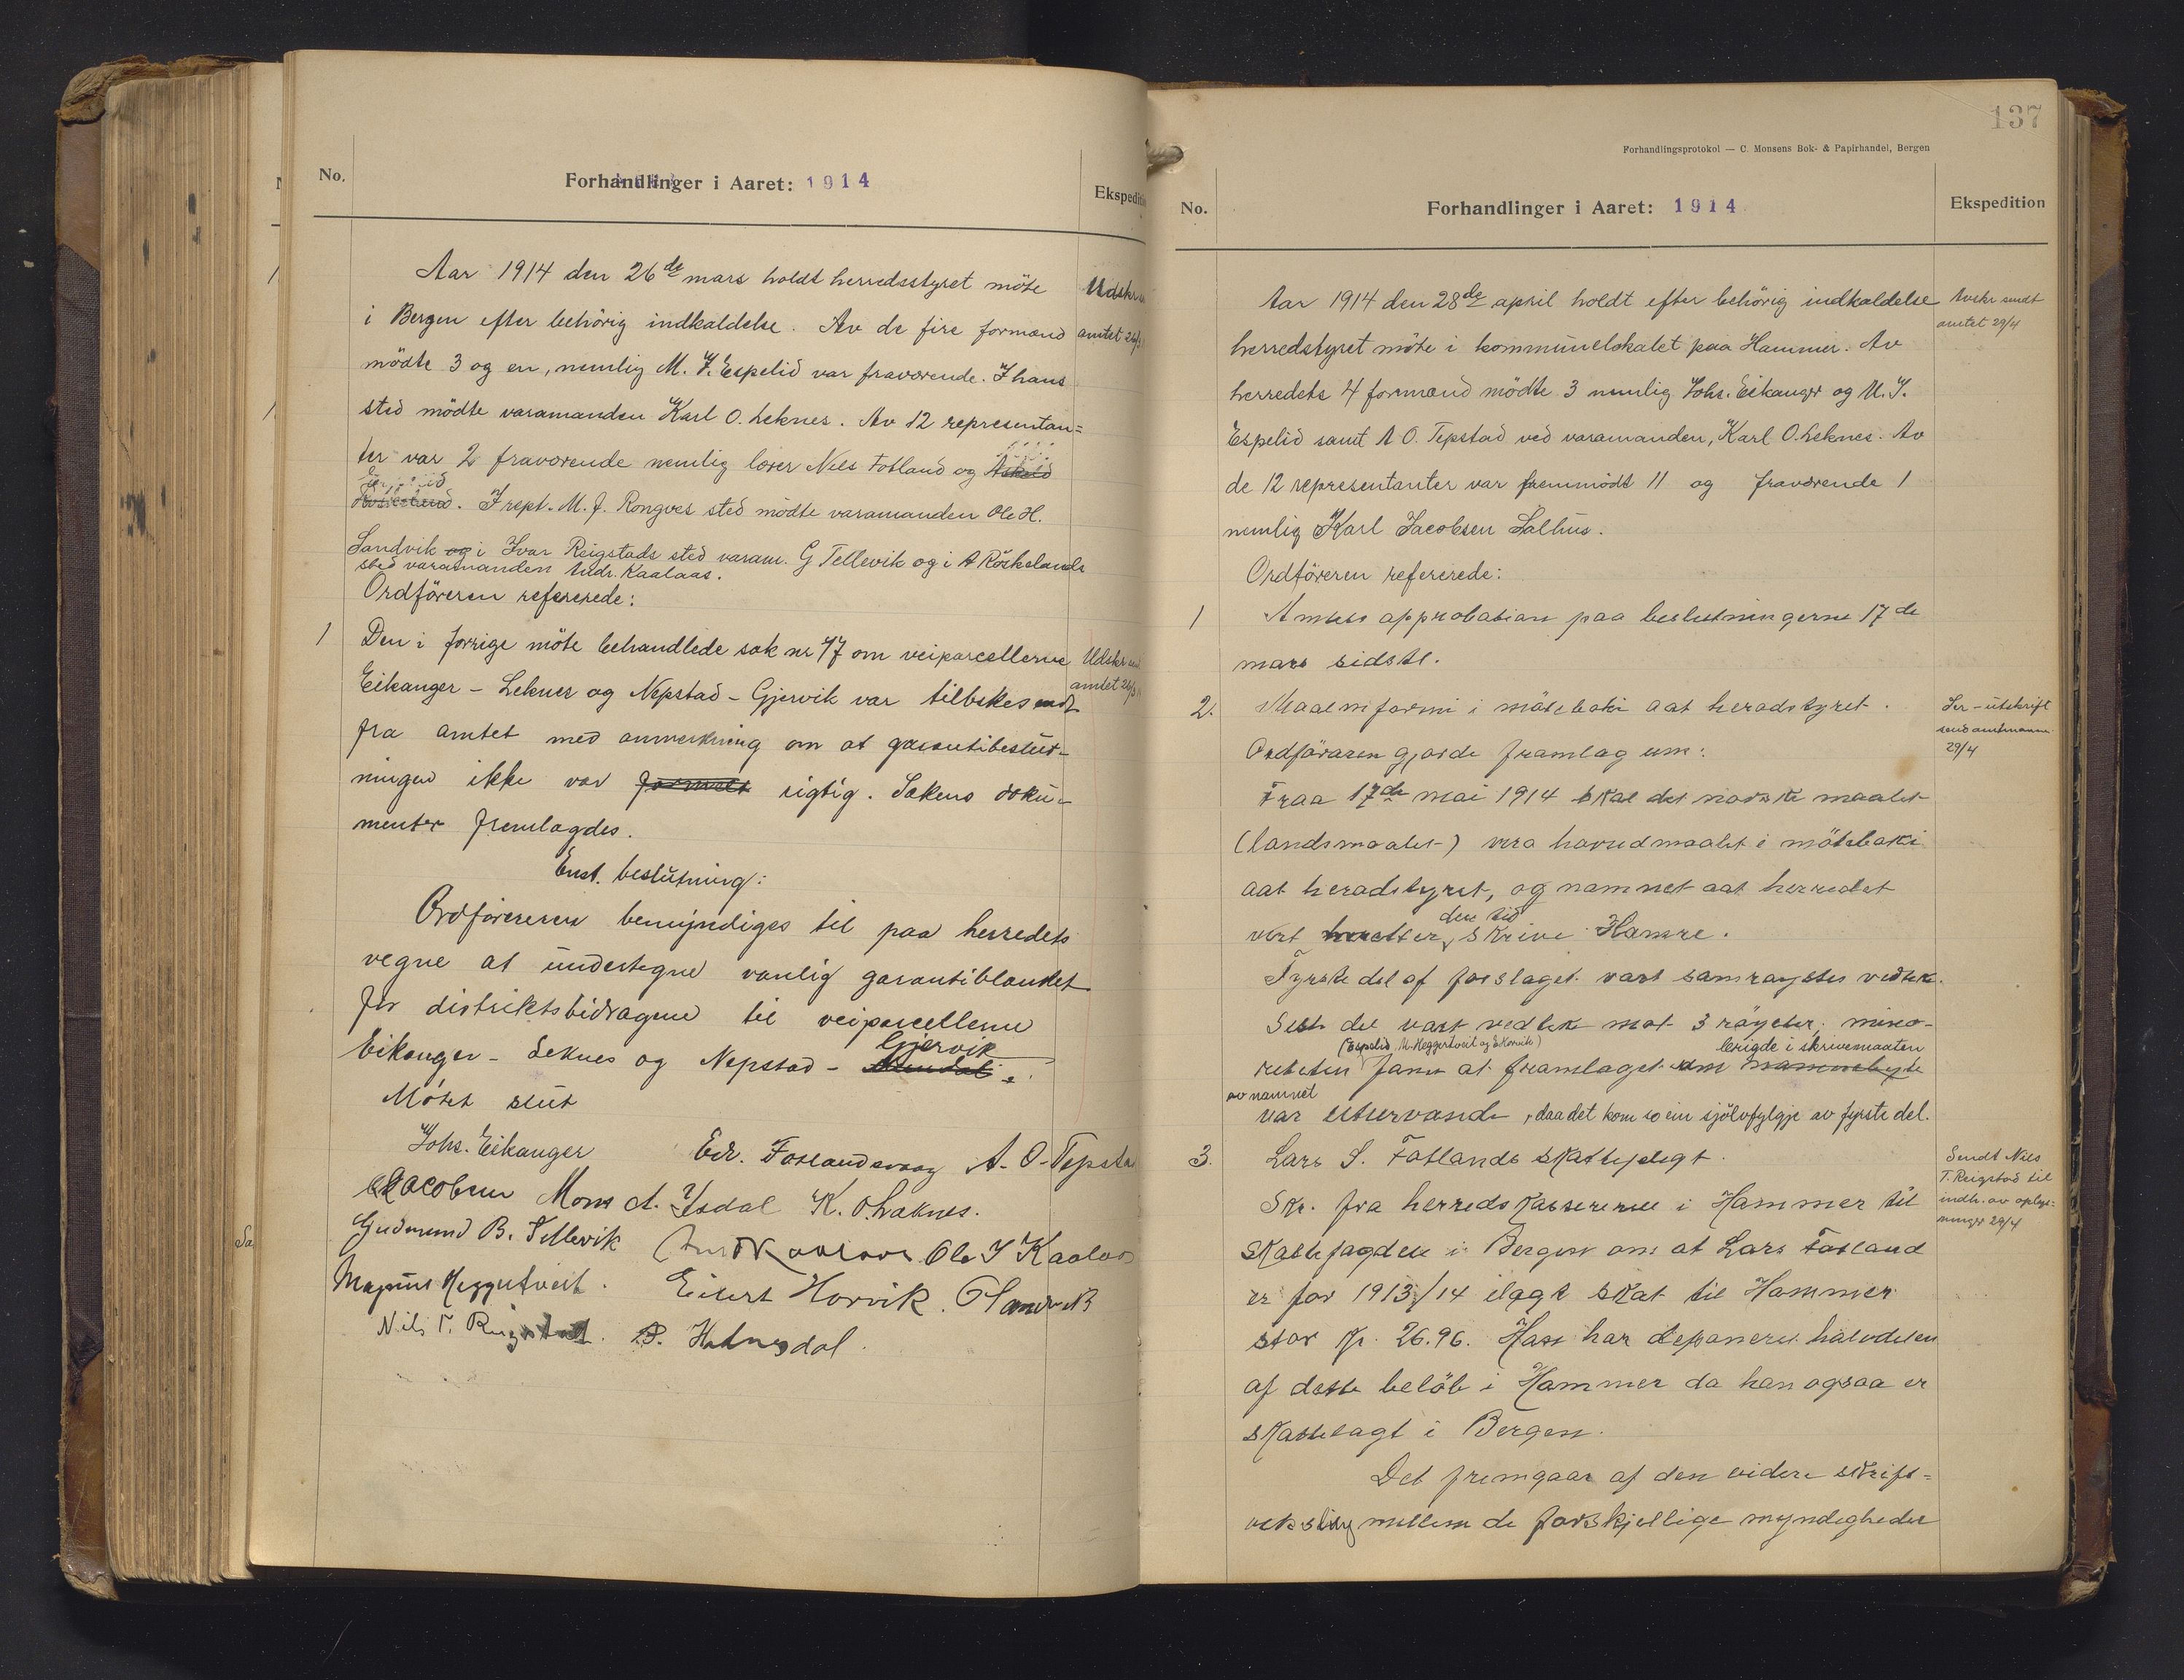 No.
Forhandlinger i Aaret: 1914
Aar 1914 den 26de mars holdt herredsstyret möte
i Bergen efter behörig indkaldelse. Av de fire formænd
mödte 3 og en, nemlig M. J. Espelid var fraværende. I hans
sted mödte varamanden Karl O. Leknes. Av 12 representan=
ter var 2 fraværende nemlig lærer Nils Fosland og Askeld
. I rept. M. J. Ronges sted mödte varamanden Ole H.
Sandvik og i Ivar Reigstads sted varam. G Tellevik og i A Röskelands
sted varamanden Andr. Kaalaas.
Ordföreren refererede:
1 Den i forrige möte behandlede sak nr 47 om veiparcellerne
Eikanger - Leknes og Nepstad - Gjervik var tilbakesendt
fra amtet med anmerkning om at garantibeslut-
ningen ikke var formelt rigtig. Sakens doku-
menter fremlagdes.
Enst. beslutning:
Ordföreren bemyndiges til paa herredets
vegne at undertegne vanlig garantiblanket
for distriktsbidragene til veiparcellerne
Gjervik
Eikanger - Leknes og Nepstad -
Mötet slut
Johs. Eikanger Edv. Foslandsvaag A. O. Tepstad
Jacobsen Mons A. Isdal K. O. Leknes.
Gudmund B. Tellevik Andr Kaalaas Ole J Kaalaas
Magnus Heggertveit. Eilert Horvik. O Sandvik
Nils T. Reigstad. Helmsdal.
Ekspedition
Udskr
amtet 26/3
Udskr
amtet 26/3
137
Forhandlingsprotokol — C. Monsens Bok- & Papirhandel, Bergen
No.
Forhandlinger i Aaret: 1914
Ekspedition
Aar 1914 den 28de april holdt efter behörig indkaldelse
herredstyret möte i kommunelokalet paa Hammer. Av
herredets 4 formænd mödte 3 nemlig Johs. Eikanger og M. J.
Espelid samt A O. Tepstad ved varamanden, Karl O. Leknes. Av
de 12 representanter var fremmödt 11 og fraværende 1
nemlig Karl Jacobsen Salhus.
Ordföreren refererede:
1 Amtets approbation paa beslutningerne 17de
mars sidstl.
2. Maalemformi i möteboki aat heradstyret.
Ordföraren gjorde framlag um:
Fraa 17de mai 1914 skal det norske maalet
(landsmaalet) vera hovudmaalet i möteboki
aat heradstyret, og namnet aat herredet
den tid
vert heretter skrive Hamre.
Fyrste del af forslaget vart samrøystes vedtek.
Siste del vart vedteke mot 3 röyster; mino-
(Espelid, M. Heggertveit og E Horvik)
brigde i skrivemaaten
riteten fann at framlaget um namnebyte
av namnet
var uturvande, daa det kom so ein sjölvfylgje av fyrste del.
3. Lars S. Fotlands skatteplegt.
Skr. fra herredskassereren i Hammer til
skattefogden i Bergen om at Lars Fotland
er for 1913/14 ilagt skat til Hammer
stor Kr. 26.96. Han har deponeret halvdelen
af dette beløb i Hammer da han ogsaa er
skattelagt i Bergen.
Det fremgaar af den videre skrift=
veksling mellem de forskjellige myndigheder
Avskr sendt
amtet 29/4
Ser-utskrift
send amtmannen
29/4
Sendt Nils
T. Reigstad til
indh. av oplys-
ninger 29/4